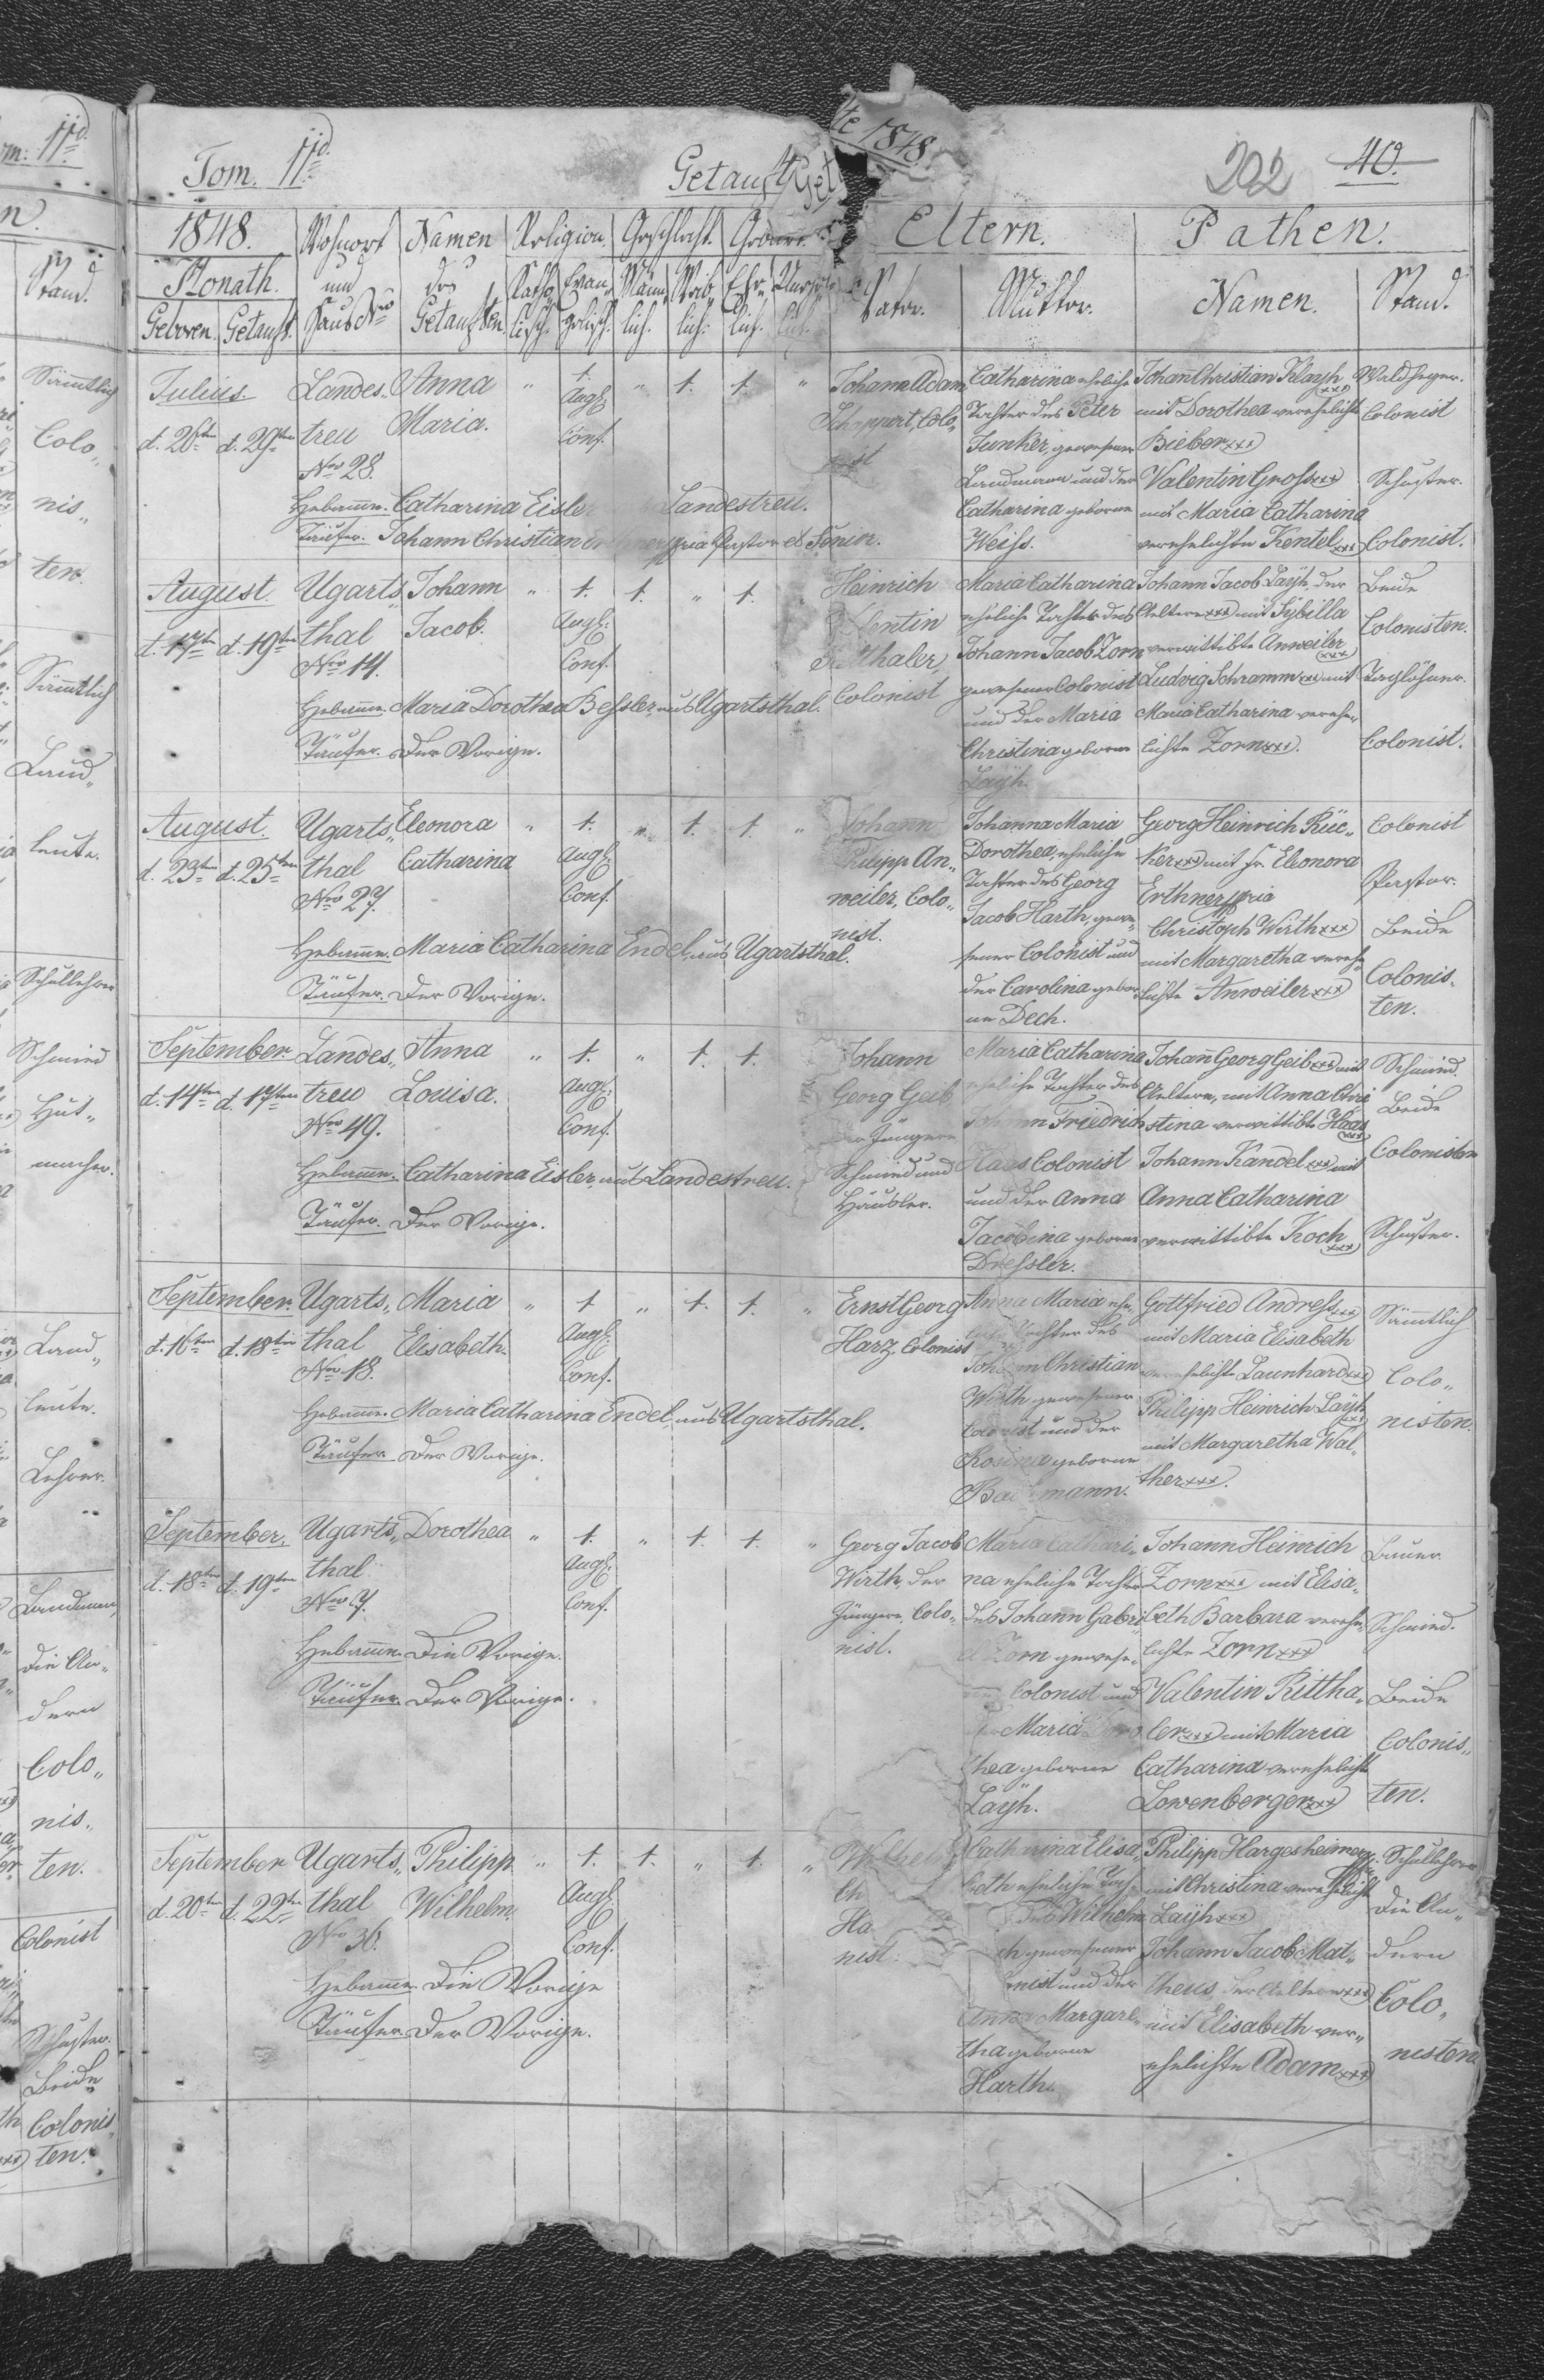 Tom. IId.
Getauf
te 1848.
202
40.
1848.
Wohnort
Namen
Religion.
Geschlecht.
Eltern.
Pathen.
Monath.
und
des
Katho
Evan
Männ
Weib
Ehe
Geboren.
Getauft.
Haus Nro
Getauften
lisch.
gelisch.
lich.
lich.
lich.
lich.
Vater.
Mutter.
Namen.
Stand.
Julius.
d. 26ten d. 29ten
Landes„
treu
Nro 28.
Anna
Maria.
" 1. " 1. 1. "
Augs:
Conf.
Johann Adam
Schappert, Colo„
nist
Catharina eheliche
Tochter des Peter
Junker, gewesener
Landmann und der
Catharina geborne
Weiss.
Johann Christian Klayh xxx
mit Dorothea verehelichte
Bieber xxx
Valentin Gross xxx
mit Maria Catharina
verehelichte Kentel xxx
Waldheger.
Colonist
Schuster.
Colonist.
Hebamme. Catharina Eisler Landestreu.
Täufer. Johann Christian mpria Pastor et Senior.
August.
d. 17ten d. 19ten
Ugarts„
thal
Nro 14.
Johann
Jacob.
" 1. 1. " 1.
Augs:
Conf.
Heinrich
Colonist
Maria Catharina
eheliche Tochter des
Johann Jacob Zorn
gewesener Colonist
und der Maria
Christina geborne
Layh.
Johann Jacob Layh der
Aeltere xxx mit Sybilla
verwittibte Anweiler xxx
Ludvig Schramm xxx mit
Maria Catharina verehe„
lichte Zorn xxx.
Beide
Colonisten.
Taglöhner.
Colonist.
Hebamme. Maria Dorothea Bessler, aus Ugartsthal.
Täufer. Der Vorige.
August.
d. 23ten d. 25ten
Ugarts„
thal
Nro 27.
Eleonora
Catharina
" 1. " 1. 1. "
Augs:
Conf.
Johann
Philipp An„
weiler, Colo„
nist.
Johanna Maria
Dorothea, eheliche
Tochter des Georg
Jacob Harth, gewe„
sener Colonist und
der Carolina gebor„
ne Dech.
Georg Heinrich Rüc„
ker xxx mit Fr. Eleonora
Erthner mpria
Christoph Wirth xxx
mit Margaretha verehe„
lichte Anweiler xxx
Colonist
Pastor.
Beide
Colonis„
ten.
Hebamme. Maria Catharina Endel, aus Ugartsthal.
Täufer. Der Vorige.
September.
d. 14ten d. 17ten
Landes„
treu
Nro 49.
Anna
Louisa.
" 1. " 1. 1.
Augs:
Conf.
Johann
Georg Geib
der Jüngere
Schmied und
Häusler.
Maria Catharina
eheliche Tochter des
Johann Friedrich
Haas Colonist
und der Anna
Jacobina geborne
Dressler.
Johann Georg Geib xxx
Aeltere, mit Anna Chri
stina verwittibte Haas xxx
Johann Kandel xxx mit
Anna Catharina
verwittibte Koch xxx
Schmied.
Beide
Colonisten
Schuster.
Hebamme. Catharina Eisler, aus Landestreu.
Täufer. Der Vorige.
September.
d. 16ten d. 18ten
Ugarts„
thal
Nro 18.
Maria
Elisabeth.
" 1 " 1. 1. "
Augs:
Conf.
Ernst Georg
Harz, Colonist
Anna Maria ehe„
liche Tochter des
Johann Christian
Wirth gewesener
Colonist und der
Rosina geborne
Gottfried Andress xxx
mit Maria Elisabeth
verehelichte Launhard xxx
Philipp Heinrich Layh xxx
mit Margaretha Wal„
ther xxx.
Sämmtlich
Colo„
nisten.
Hebamme. Maria Catharina Endel, aus Ugartsthal.
Täufer. Der Vorige.
September.
d. 18ten d. 19ten
Ugarts„
thal
Nro 7.
Dorothea
" 1. " 1. 1. "
Augs:
Conf.
Georg Jacob
Wirth, der
Jüngere, Colo„
nist.
Maria Cathari„
na eheliche Tochter
des Johann Gabri„
el Zorn gewese„
Colonist und
der Maria Doro
thea geborne
Layh.
Johann Heinrich
Zorn xxx mit Elisa„
beth Barbara verehe„
lichte Zorn xxx
Valentin Rittha„
ler xxx mit Maria
Catharina verehelichte
Lowenberger xxx
Bauer
Schmied.
Beide
Colonis„
ten.
Hebamme. Die Vorige.
Täufer. Der Vorige.
September
d. 20ten d. 22ten
Ugarts„
thal
Nro 36.
Philipp
Wilhelm.
" 1. 1. " 1. "
Augs:
Conf.
Wilhelm
Ha
nist.
Catharina Elisa„
beth eheliche Toch„
des Wilhelm
gewesener
nist und der
Anna Margare„
tha geborne
Harth.
Philipp Hargesheimer
mit Christina verehelichte
Layh xxx
Johann Jacob Mat„
theus, der Aeltere xxx
mit Elisabeth ver„
ehelichte Adam xxx
Schullehrer
Die An„
dern
Colo„
nisten
Hebamme. Die Vorige
Täufer. Der Vorige.
Stand.
Sämmtlich
Colo„
nis„
ten.
Sämmtlich
Land„
leute.
Schullehrer
Schmied
Hut„
macher.
Land„
leute.
Lehrer.
Landmann,
Die An„
dern
Colo„
nis„
ten.
Colonist
Schuster.
Beide
Colonis„
ten.